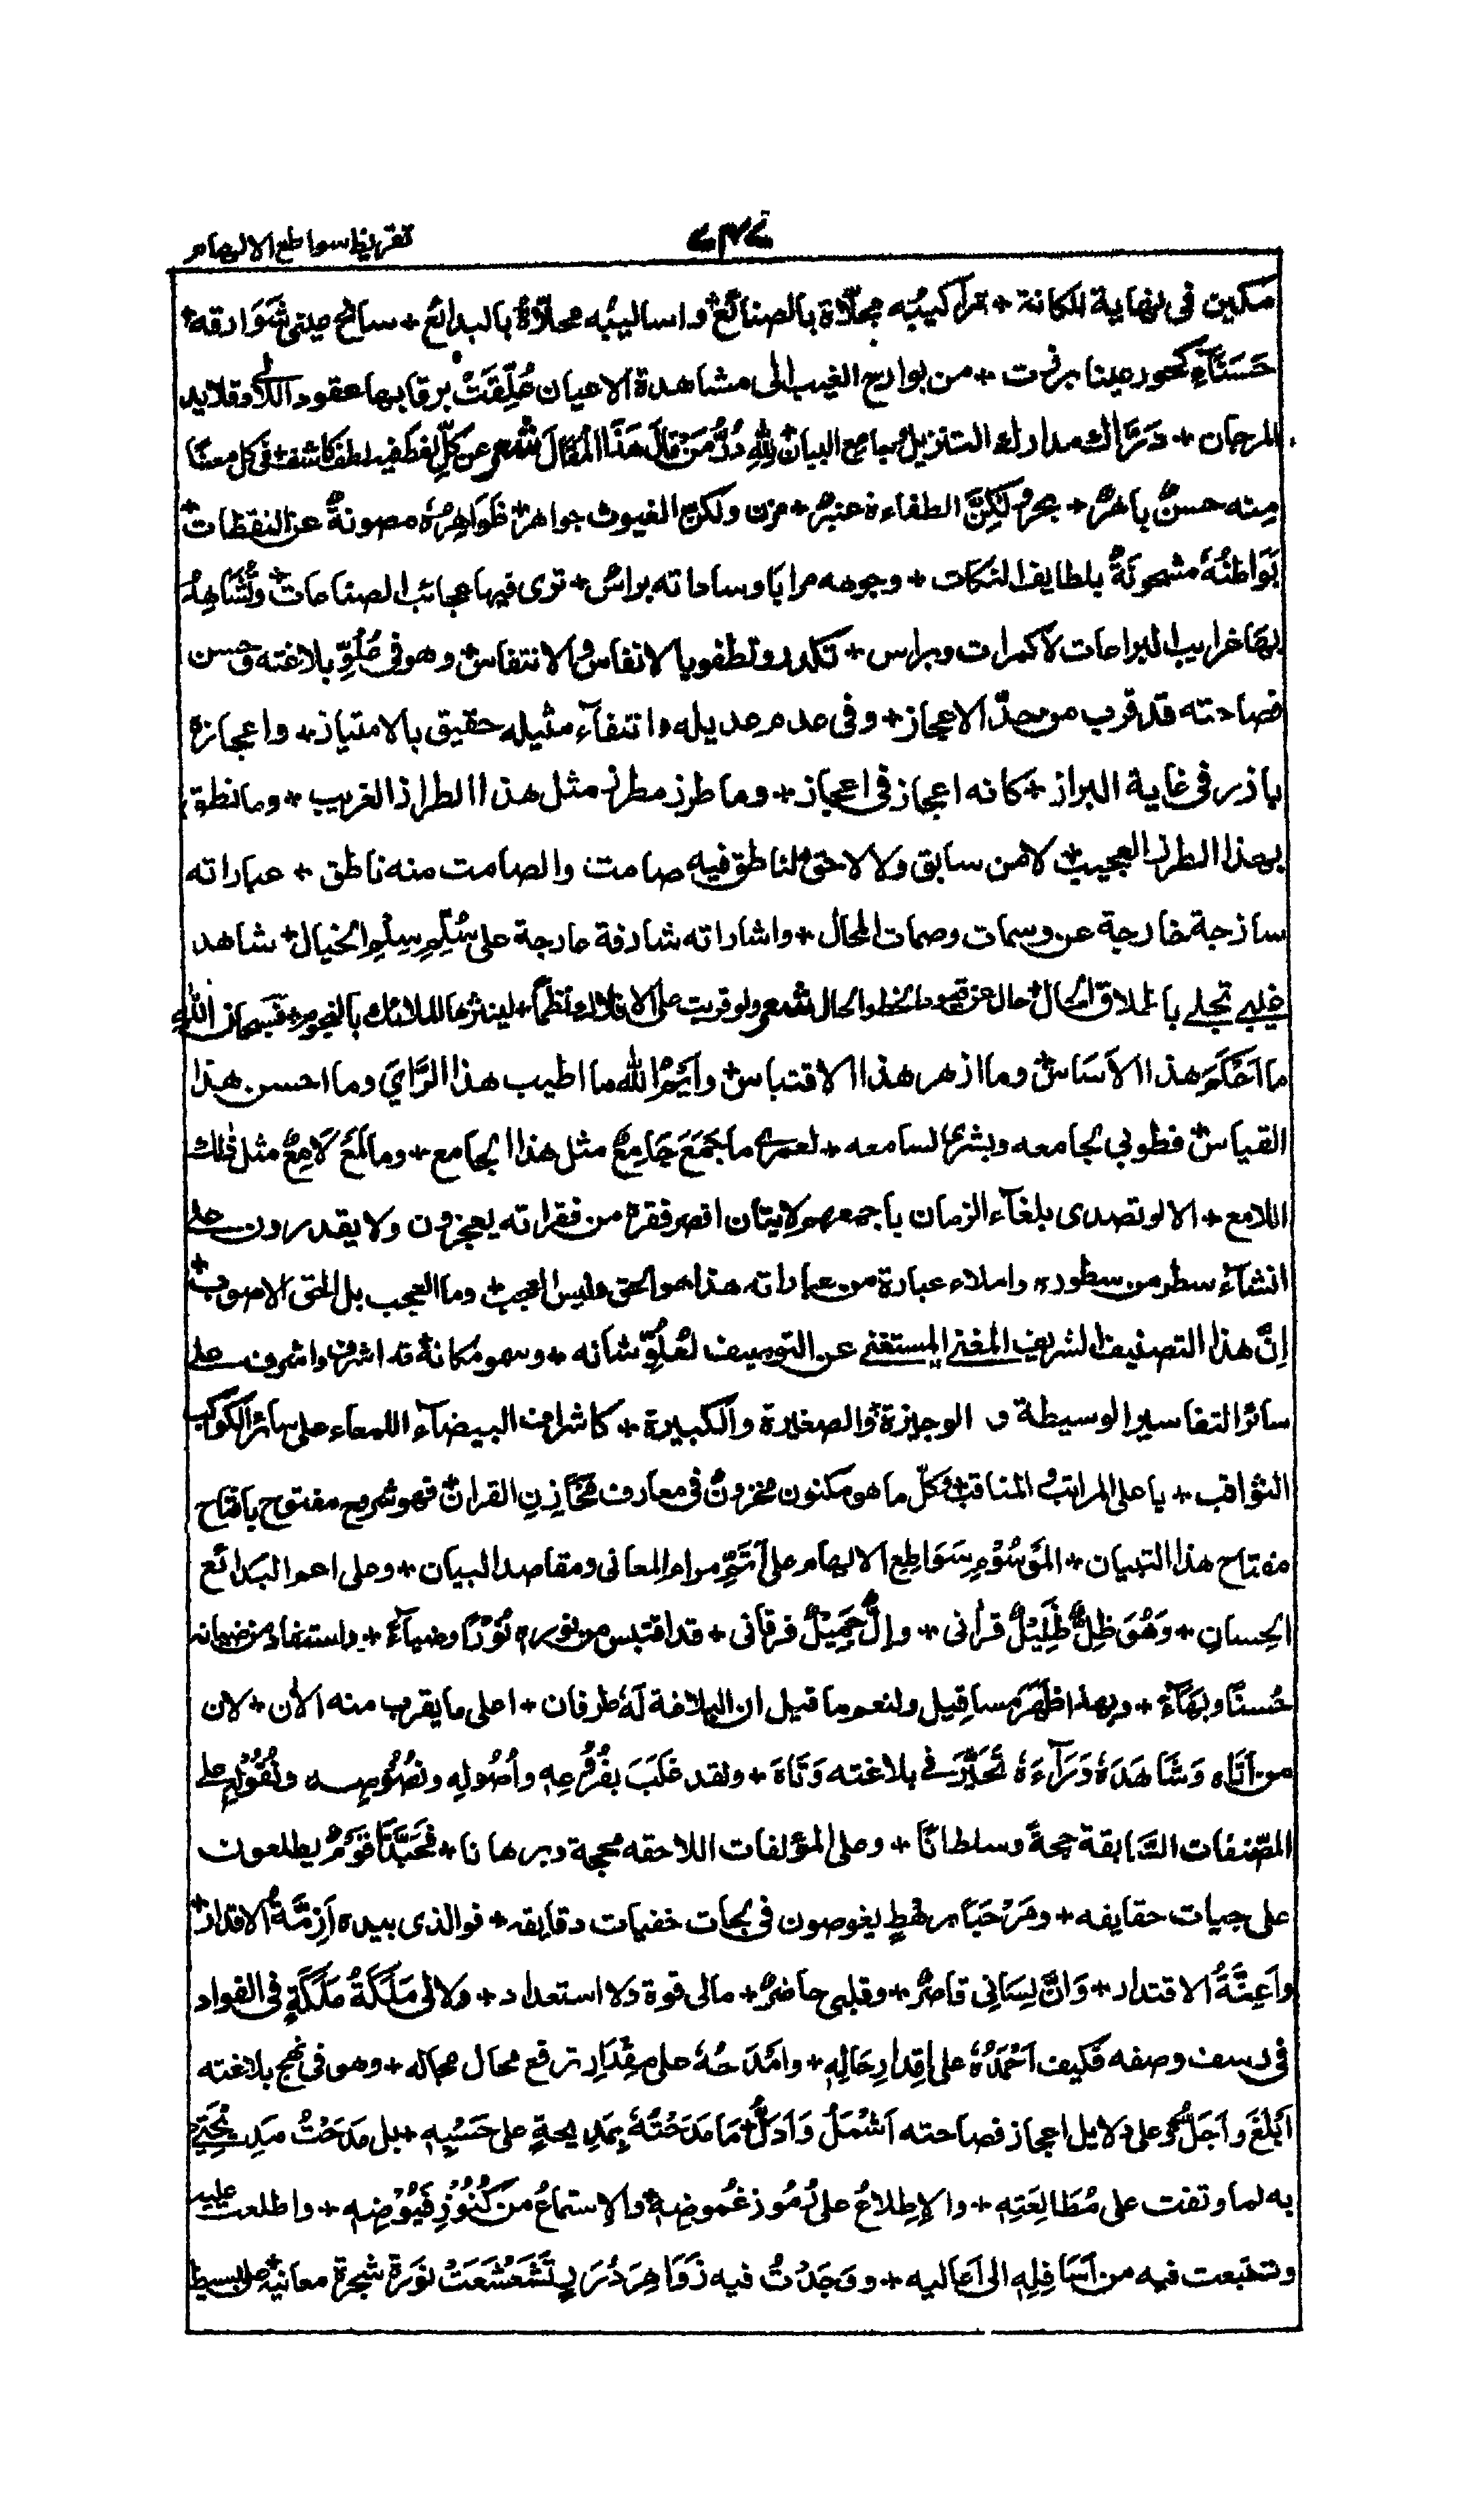 تقريظ سواطع الالهام
مكين فى نهاية المكانة + تراكيبُه مجلّاة بالصنائع + واساليبُه محلّاةٌ بالبدائع + سانح
حَسَنَآءِ كحور عينا برزت + من بوارع الغيب الى مشاهدة الاعيان عُلِّقَتْ برقابها عقود اللآلى وقلايد
المرجان + مدارك التنزيل جامع البيان + لِلّٰهِ دُرُّ مَنْ قَالَ هَذَا الْمَقَالَ شعر عن كلِّ لفظ فى كل معنًا
مِنه حسنٌ باهرٌ + بحرٌ لٰكِنَّ الطفاءة عنبرٌ + مزن ولكن الغيوث جواهر + ظَوَاهِرُهٗ مصونةٌ عن النقظات +
بَوَاطِنُهٗ مشحونَةٌ بلطايف النكات + وجوهه مرايا وساداته براس + ترى فيها عجائب الصناعات + وتُشَاهِدُ
بِهَا غرايب البراعات لا كمرات وبراس + تكدر وتطفو بالانفاس والانتفاس + وهو فى عُلُوِّ بلاغته وحسن
فصاحته قد قرب من حدّ الاعجاز + وفى عدم عديله وانتفآء مثيله حقيق بالامتياز + واعجازه
باذر فى غاية البراز + كانه اعجاز فى اعجاز + وما طرز مطرز مثل هذا الطراز الغريب + وما نطق
بهذا الطرز العجيب + لا من سابق ولا لاحق + الناطق فيه صامت والصامت منه ناطق + عباراته
ساذجة خارجة عن وسمات وصمات المحال + واشاراته شارفة عارجة على سُلَّمِ سِلْمِ الخيال + شاهد
غيبى تجلے باطلاق الحال + شعر ولو قريت على الافلاك نظمًا + لينثرها الملائك بالنجوم + فسبحان اللّٰه
ما اَحْكَمَ هذا الاَسَاسَ + وما ازهر هذا الاقتباس + وَاَيْمُ اللّٰه ما اطيب هذا الرَّايَ وما احسن هذا
القياس + فطوبى لجامعه وبشرى لسامعه + لعمرى ما جَمَعَ جَامِعٌ مثل هذا الجامع + وما لَمَعَ لَامِعٌ مثل ذلك
اللامع + الا لو تصدى بلغآء الزمان باجمعهم لايتان اقصر فقرة من فقراته يعجزون ولا يقدرون على
انشآء سطر من سطوره واملاء عبارة من عباراته هذا هو الحق وليس العجب + وما العجب بل الحق الاصوب +
اِنَّ هذا التصنيف الشريف المغنى المستغنى عن التوصيف لعُلُوِّ شانه + وسمو مكانهٖ قد اشرق واشرف على
سائر التفاسير الوسيطة و الوجيزة والصغيرة والكبيرة + كاشراق البيضآء اللمعاء على سائر الكوكب
الثواقب + باعلى المراتب والمناقب + وكلّ ما هو مكنون مخزونٌ فى معارف مَخَازِنِ القران + فهو شروح مفتوح بافتاح
مفتاح هذا التبيان + المَوْسُوْمِ سَوَاطِعِ الالهام على اَتَمِّ مرام المعانى ومقاصد البيان + وعلى اعم البَدائع
الحِسان + وَهُوَ ظِلٌّ ظَلِيْلٌ قرأنى + وإلٌّ جَمِيْلٌ فرقانى + قد اقتبس من نوره نُوْرًا وضيآءً + واستفاد من ضمانه
حُسنًا وبَهَآءً + وبهذا ظَهَرَ مساقيل ولنعم ما قيل ان البلاغة لَهٗ طرفان + اعلى ما يقرب منه الأن + لان
من اَتَاه وَشَاهَدَهٗ وَرَآءَهٗ تَحَيَّرَ فى بلاغته وَتَاهَ + ولقد غَلَبَ بفُرُعِهٖ واُصُولِهٖ ونصُوصِـه ونُقُوْلِهٖ على
المصّنفات السَّابقة حجةً وسلطانًا + وعلى المؤلفات اللاحقه محجة وبرهانا + فَحَبَّذَا قَوْمٌ يطلعون
على جيات حقايقه + ومَرْحَبًا برهْطٍ يغوصون فى لجات خفيات دقايقه + فوالذى بيده اَزِمَّةُ الاقدار +
واَعِنَّةُ الاقتدار + وَاِنَّ لِسَانِى قاصرٌ + وقلبى حاضرٌ + مالى قوة ولا استعداد + ولا لى مَلَكَةُ مَلَكَةٍ فى الفواد
فى رسف وصفه فكيف اَحْمَدُهٗ على اِقدارِحَالِهٖ + وامْدَحُهٗ على مِقْدَارِ ترفع محال مجاله + وهو فى نهج بلاغته
اَبْلَغَ واَجَلُّ + وعلى دلايل اعجاز فصاحته اَشْمَلُ وَاَدَلُّ + مَا مَدَحْتُهٗ بِمَدِيحةٍ على حَسَبِهٖ + بل مَدَحْتُ مَدِيْحَتِى
به لما وقفت على مُطَالِعَتِهٖ + والاِطِلاعُ على رُمُوزِ غُموضِهٖ + والاِستماعُ مِنْ كُنُوْزِ فُيُوْضِهٖ + واطلعت عليه
وتتبعت فيه من اَسَافِلِهٖ الى اَعاليه + ووَجَدْتُ فيه زَوَاهِرَ دُرَرٍ تَشَعْشَعَتْ نَوَرَةُ شجرة معانيه + على بسيط